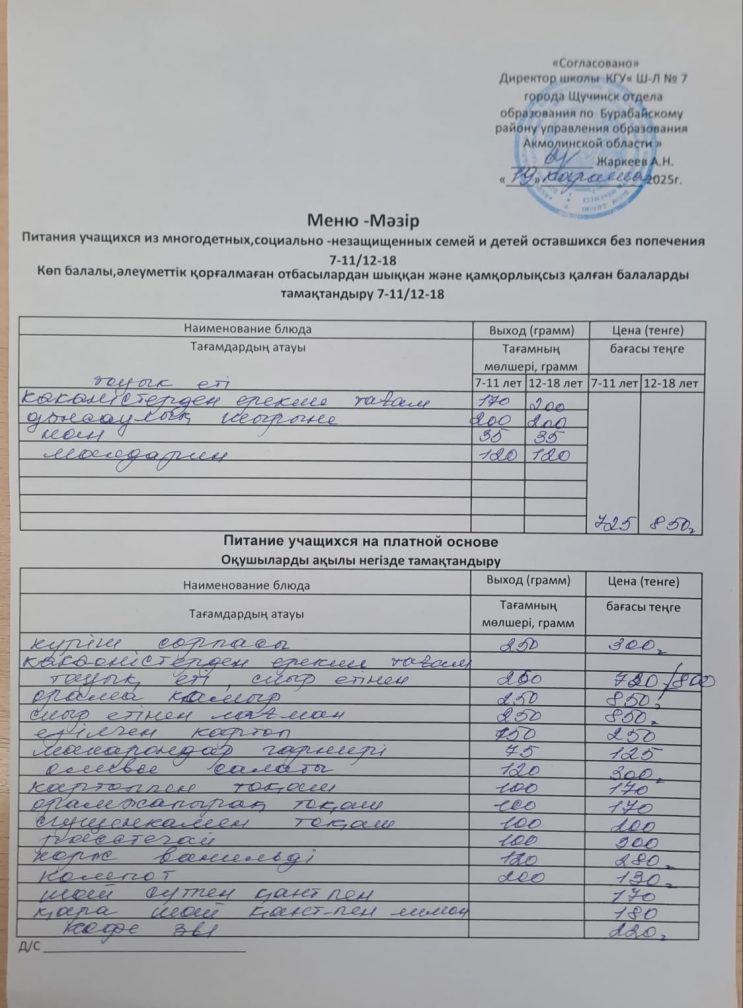 «Согласовано»
Директор школы КГУ« Ш-Л № 7
города Щучинск отдела
образования по Бурабайскому
району управления образования
Акмолинской области »
Жаркеев А.Н.
«19» қараша 2025г.
Меню -Мәзір
Питания учащихся из многодетных,социально -незащищенных семей и детей оставшихся без попечения
7-11/12-18
Көп балалы,әлеуметтік қорғалмаған отбасылардан шыққан және қамқорлықсыз қалған балаларды
тамақтандыру 7-11/12-18
Наименование блюда Выход (грамм) Цена (тенге)
Тағамдардың атауы Тағамның мөлшері, грамм бағасы теңге
7-11 лет 12-18 лет 7-11 лет 12-18 лет
тауық еті
көкөністерден ерекше тағам 170 200
денсаулық шырыны 200 200
нан 35 35
мандарин 120 120
725 850
Питание учащихся на платной основе
Оқушыларды ақылы негізде тамақтандыру
Наименование блюда Выход (грамм) Цена (тенге)
Тағамдардың атауы Тағамның мөлшері, грамм бағасы теңге
күріш сорпасы 250 300
көкөністерден ерекше тағам
тауық еті, сиыр етінен 200 720/800
орама қамыр 250 850
сиыр етінен 250 850
езілген картоп 150 250
макарондар гарнирі 75 125
салаты 120 300
картоппен тоқаш 100 170
орамжапырақ тоқаш 100 170
сгущенкамен тоқаш 100 200
100 300
корж ванильді 120 280
компот 200 130
шай сүтпен қантпен 170
қара шай қант-пен лимон 180
кофе 3в1 220
Д/С